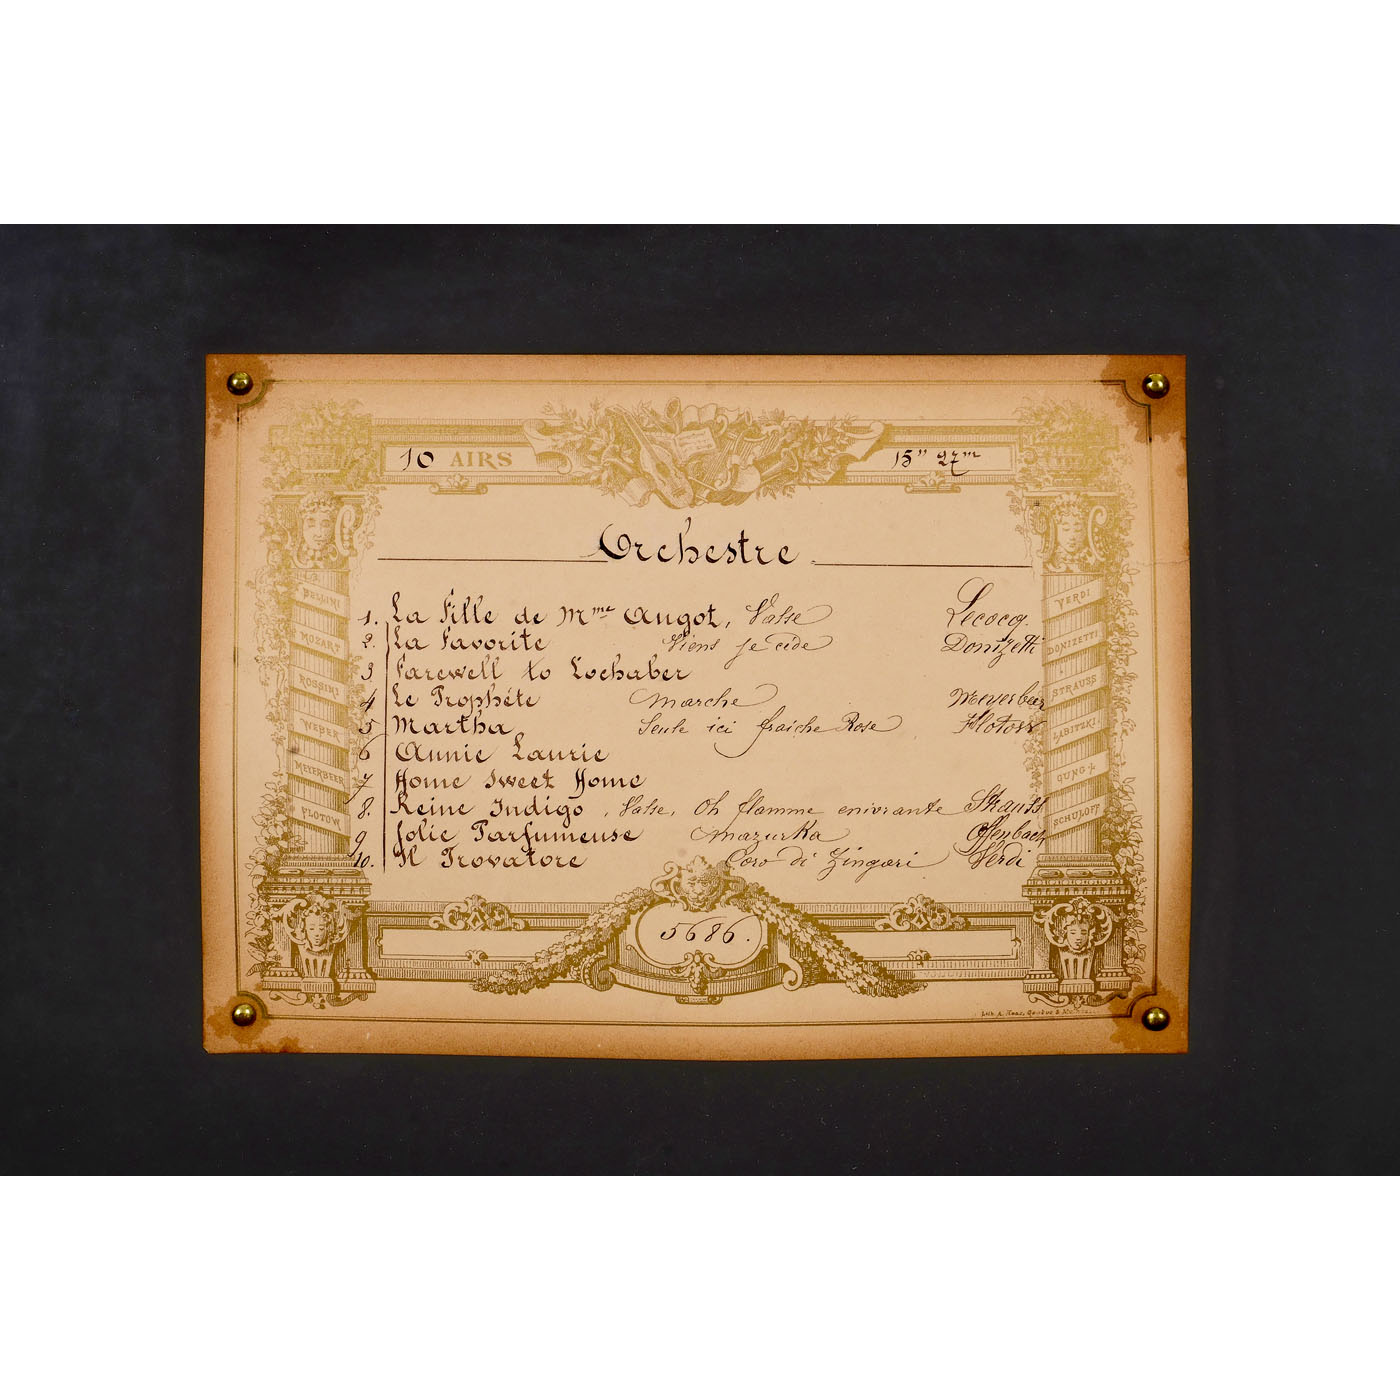 10 AIRS 15" 27m
Orchestre
1. La Fille de Mme Angot, Valse Lecocq.
2. La Favorite Viens je cède Donizetti
3 Farewell to Lochaber
4 Le Prophète Marche Meyerbeer
5 Martha Seule ici fraiche Rose Flotow
6 Annie Laurie
7 Home Sweet Home
8. Reine Indigo, Valse, Oh flamme enivrante Strauss
9 Jolie Parfumeuse Mazurka Offenbach
10. Il Trovatore Coro di Zingari Verdi
5686.
BELLINI
MOZART
ROSSINI
WEBER
MEYERBEER
FLOTOW
VERDI
DONIZETTI
STRAUSS
LABITZKI
GUNG'L
SCHULOFF
Lith. A. Haas, Genève &